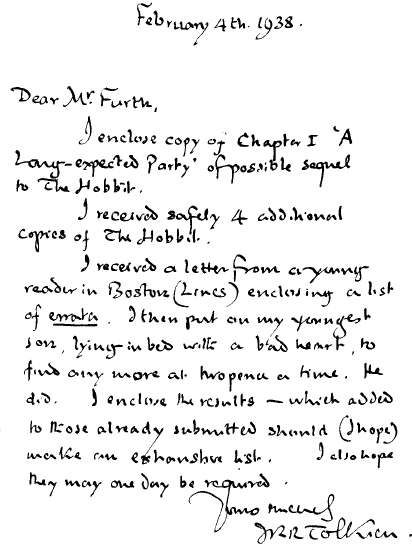 February 4th. 1938.
Dear Mr. Furth,
I enclose copy of Chapter I 'A
Long-expected Party' of possible sequel
to The Hobbit.
I received safely 4 additional
copies of The Hobbit.
I received a letter from a young
reader in Boston (Lincs) enclosing a list
of errata. I then put on my youngest
son, lying in bed with a bad heart, to
find any more at twopence a time. He
did. I enclose the results – which added
to those already submitted should (I hope)
make an exhaustive list. I also hope
they may one day be required.
Yours sincerely
JRR Tolkien.